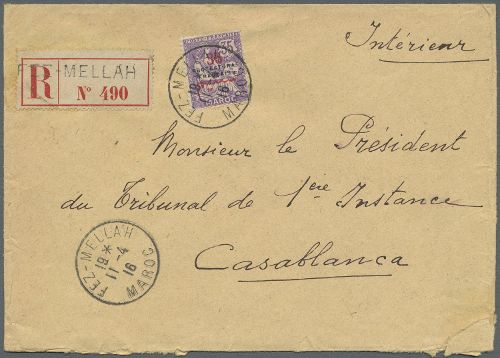 Intérieur
FEZ-MELLAH
R
Nº 490
35
PROTECTORAT
FRANÇAIS
MAROC
FEZ-MELLAH
MAROC
Monsieur le Président
du Tribunal de 1ère Instance
Casablanca
FEZ-MELLAH
18*
11-4
16
MAROC